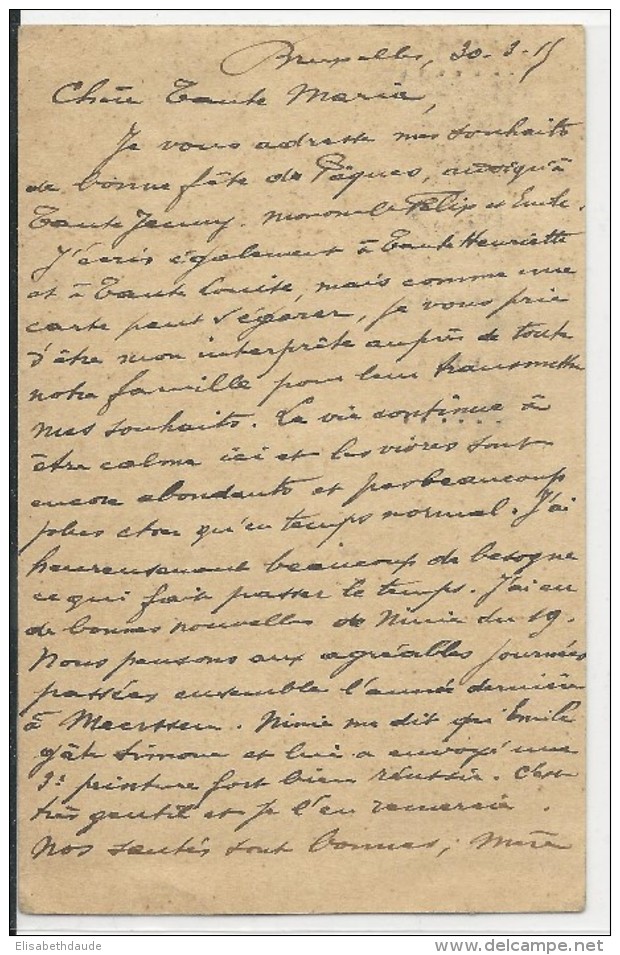 Bruxelles, 30-3-15
Chère Tante Maria,
Je vous adresse mes souhaits
de bonne fête de Pâques, ainsi qu'à
Tante Jenny. Félix et Emile.
J'écris également à Tante Henriette
et à Tante Louise, mais comme une
carte peut s'égarer, je vous prie
d'être mon interprète auprès de toute
notre famille pour leur transmettre
mes souhaits. La vie continue à
être calme ici et les vivres sont
encore abondants et pas beaucoup
plus cher qu'en temps normal. J'ai
heureusement beaucoup de besogne
ce qui fait passer le temps. J'ai eu
de bonnes nouvelles de Ninie du 19.
Nous pensons aux agréables journées
passées ensemble l'année dernière
à Meerssen. Ninie me dit qu'Emile
gâte Simone et lui a envoyé une
3e peinture fort bien réussie. C'est
très gentil et je l'en remercie.
Nos santés sont bonnes; Mère
Elisabethdaude
www.delcampe.net